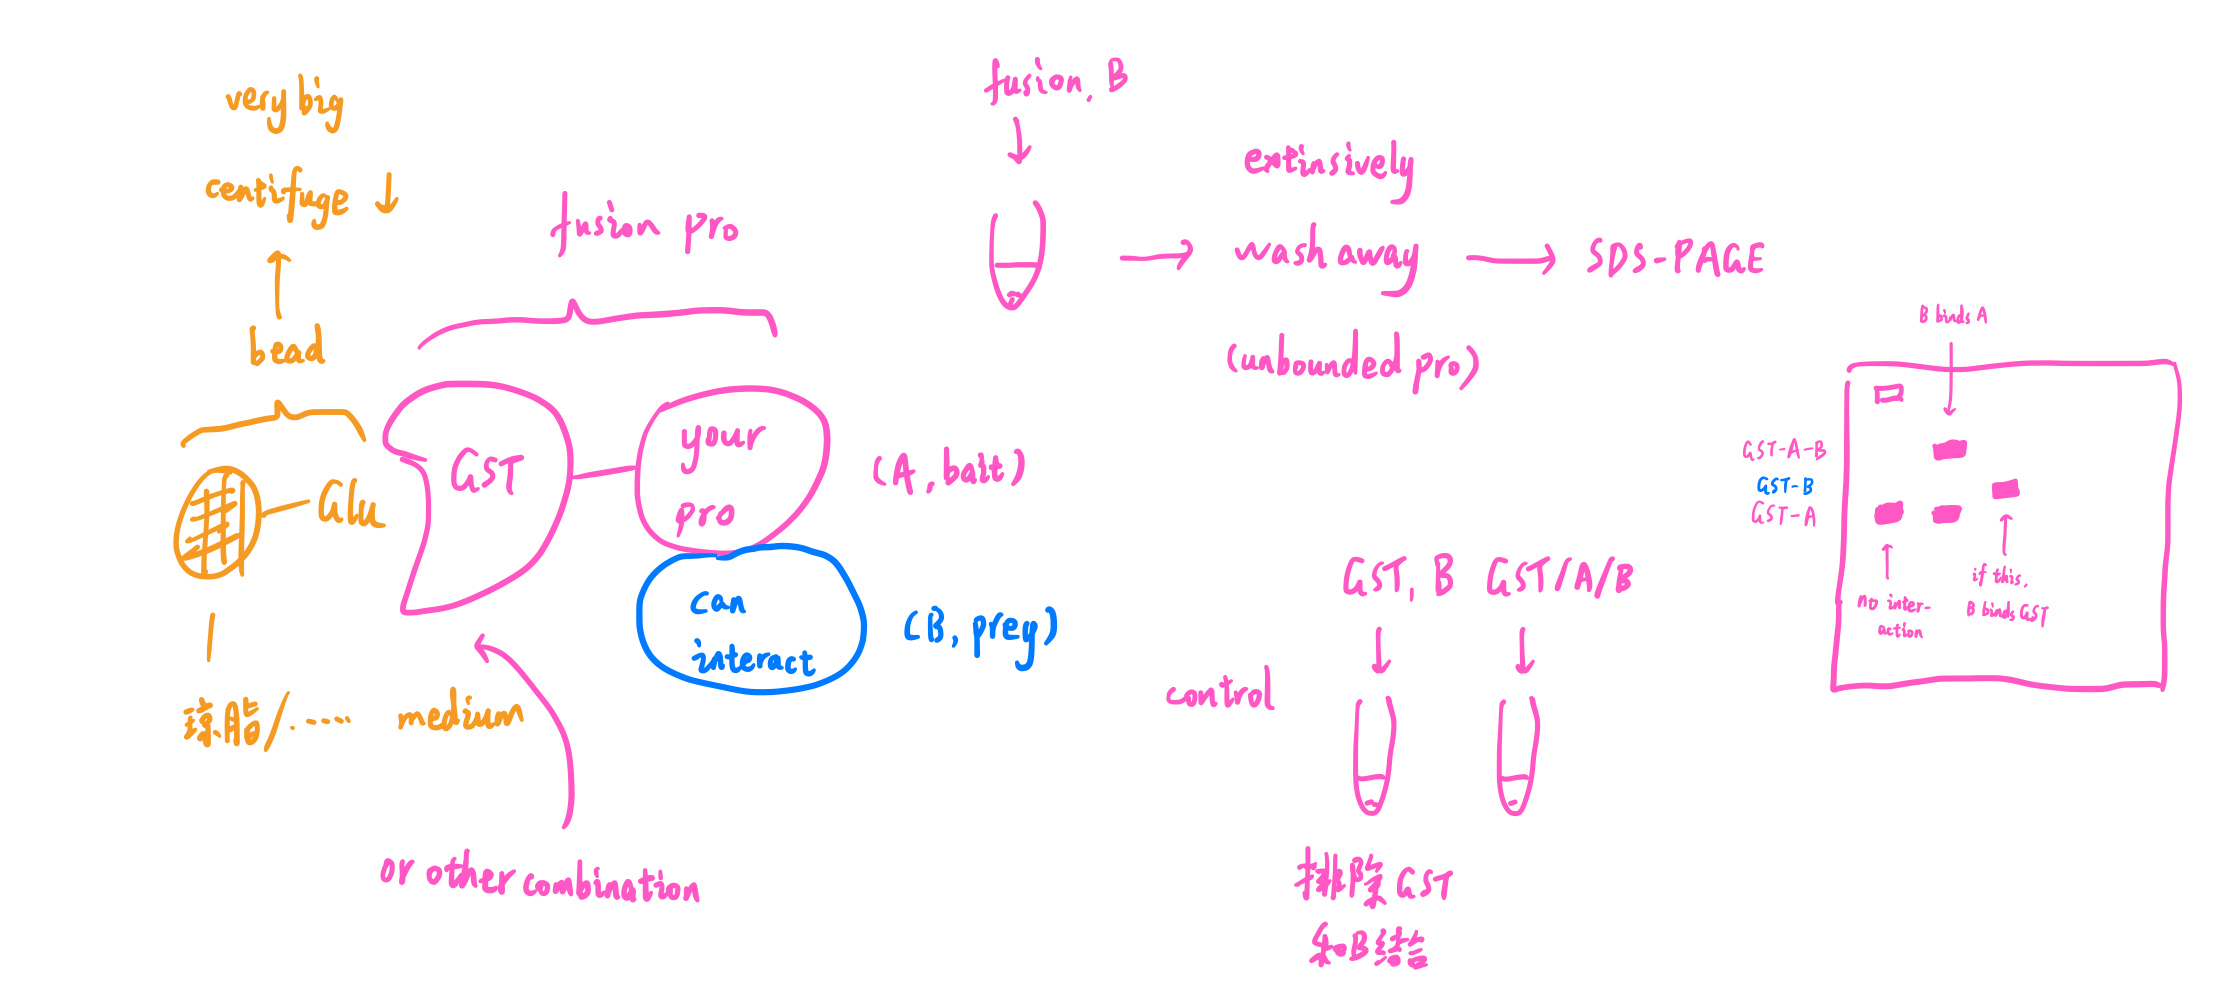 very big
centifuge ↓
bead
Glu
琼脂/..... medium
fusion pro
GST
your
pro
(A, bait)
can
interact
(B, prey)
or other combination
fusion, B
extinsively
wash away
(unbounded pro)
SDS-PAGE
control
GST, B
GST/A/B
排除GST
和B结合
B binds A
GST-A-B
GST-B
GST-A
no inter-
action
if this,
B binds GST